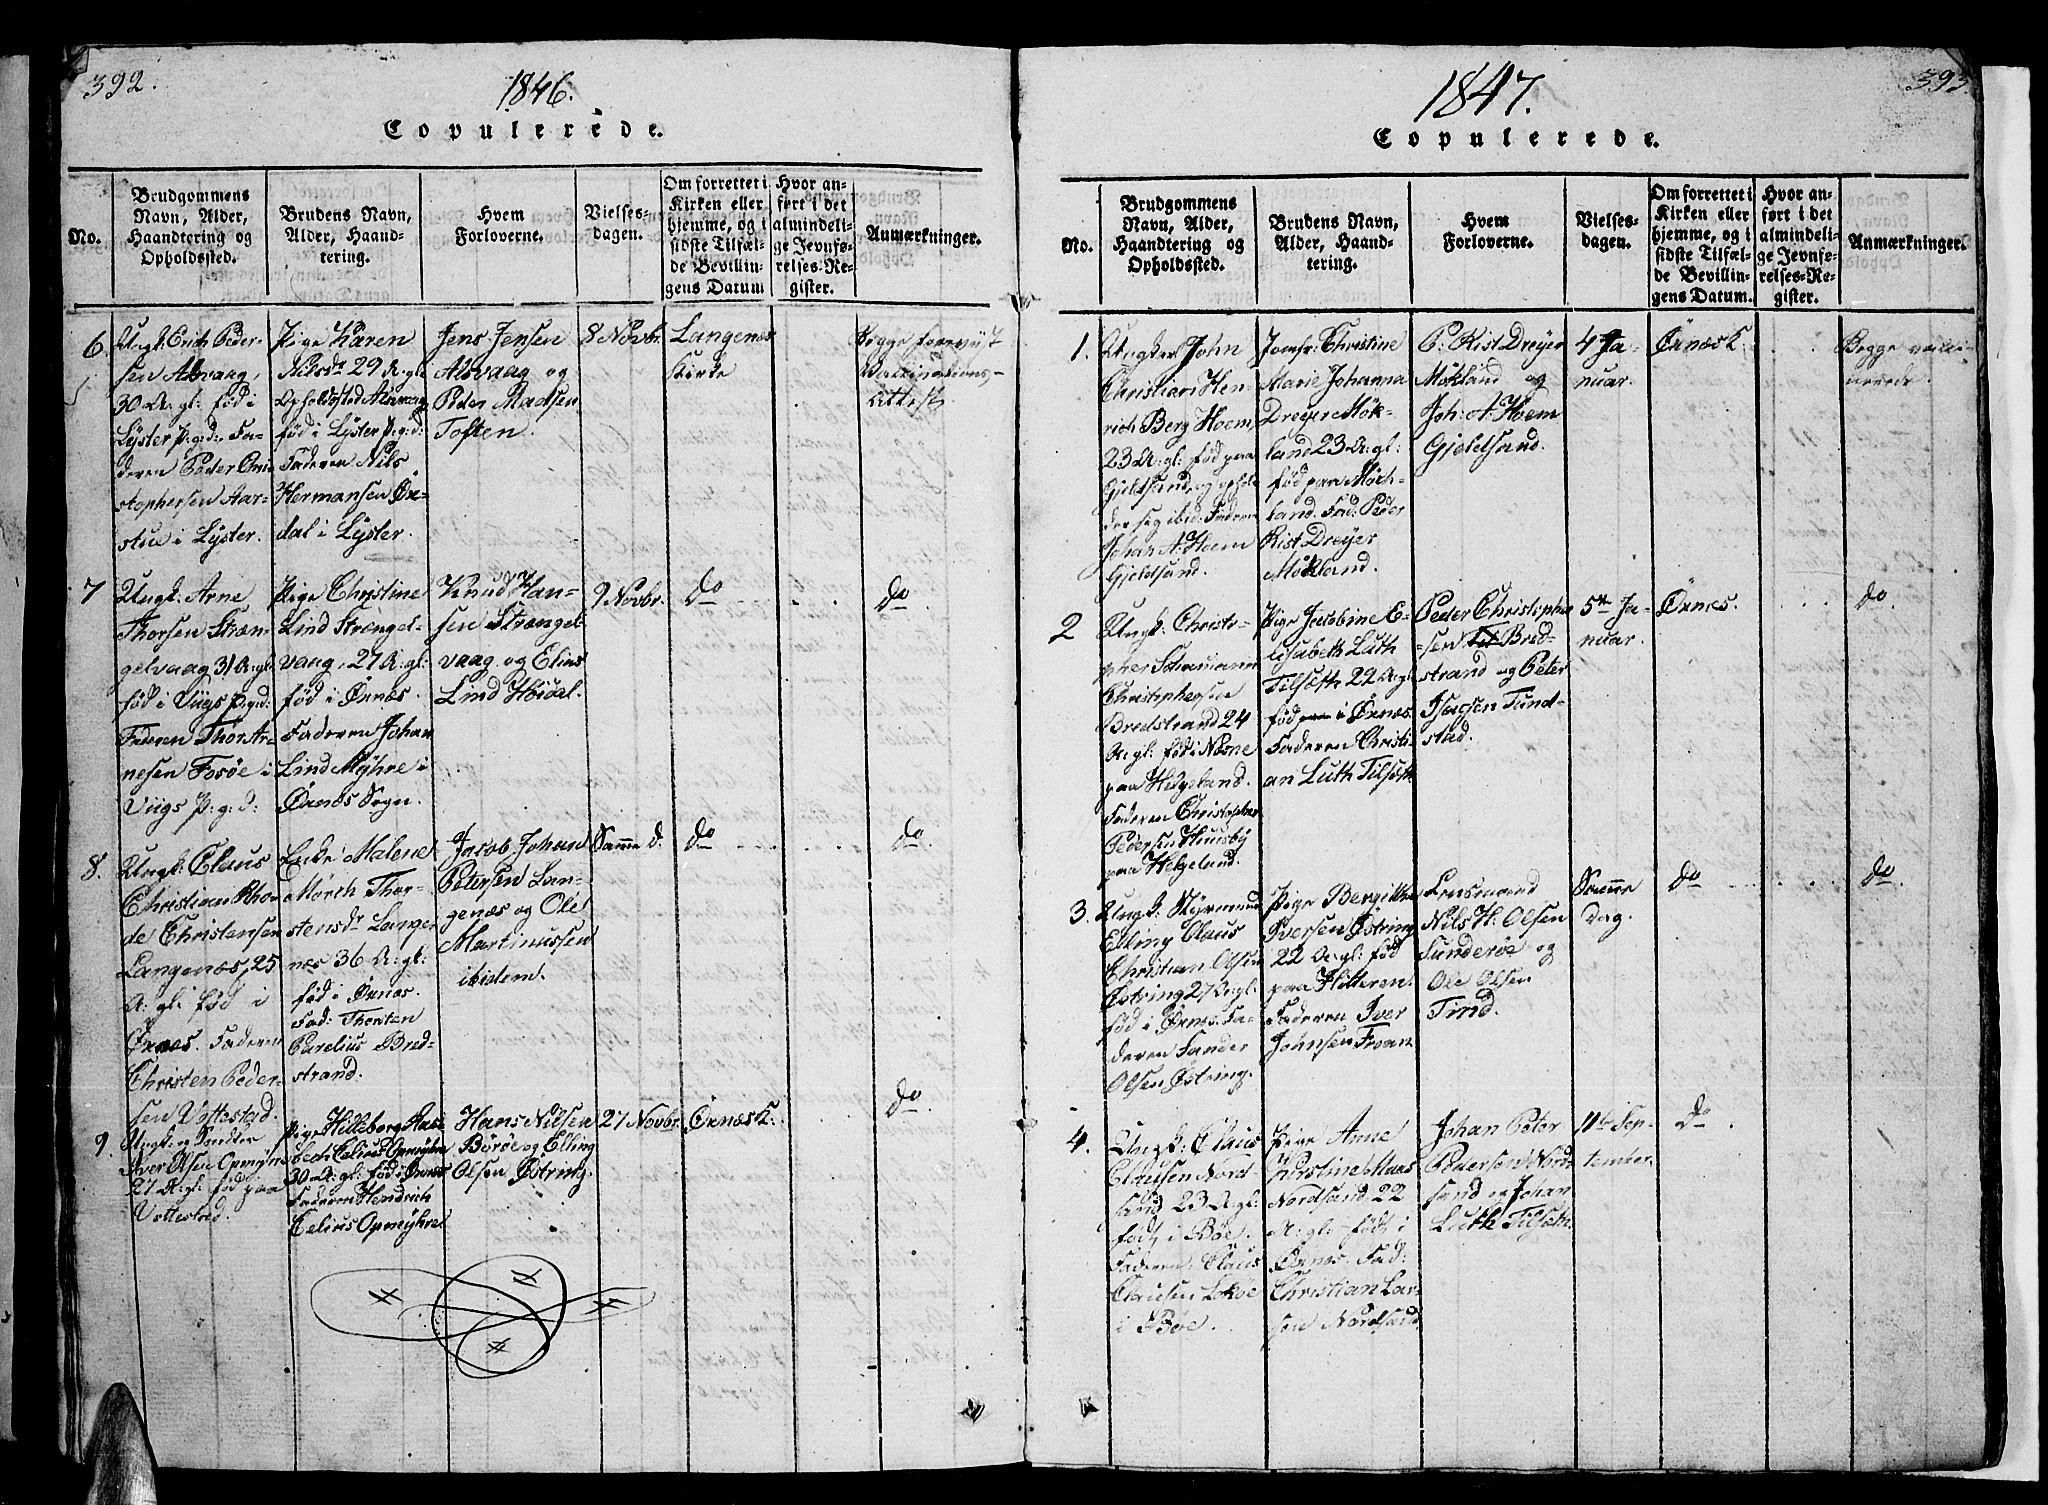 392.
1846.
Copulerede.
No.
Brudgommens
Navn, Alder,
Haandtering og
Opholdssted.
Brudens Navn,
Alder, Haand-
tering.
Hvem
Forloverne.
Vielses-
dagen.
Om forrettet i
Kirken eller
hjemme, og i
sidste Tilfæl-
de Bevillin-
gens Datum
Hvor an-
ført i det
almindeli-
ge Jevnfø-
relses-Re-
gister.
Anmærkninger.
6
Ungk: Erich Peder-
sen Alsvaag,
30 A: gl: fød i
Lyster P: g: d:, Fa-
deren Peder
stophersen Aar-
stue i Lyster.
Pige Karen
Nilsdr 29 A: gl:
Opholdssted Alsvaag
fød i Lyster P: g: d:
Faderen Nils
Hermansen
dal i Lyster.
Jens Jensen
Alsvaag og
Peder Madsen
Toften.
8 Novbr.
Langenæs
Kirke
Begge foreviist
Vaccinations-
Attest.
7
Ungk: Arne
Thorsen Stræn-
gelvaag 31 A: gl:
fød i Viigs P: g: d:
Faderen Thor Ar-
nesen Fosøe i
Viigs P: g: d:
Pige Christine
Lind Strængel-
vaag, 27 A: gl:
fød i Øxnæs.
Faderen Johan
Lind Myhre i
Øxnæs Sogn.
Knud Han-
sen Strængel-
vaag og Elias
Lind Høidal.
9 Novbr.
do
do
8.
Ungk: Claus
Christian Rho-
de Christensen
Langenæs, 25
A: gl: fød i
Øxnæs. Faderen
Christen Peder-
sen Vottestad.
Enke Malene
Mørch Thor-
stensdr Lange-
næs 36 A: gl:
fød i Øxnæs.
Fad: Thorsten
Parelius Bred-
strand.
Jacob Johan
Petersen Lan-
genæs og Ole
Martinussen
ibidem.
Samme d.
do
do.
9.
Ungk:
Iver Olsen Opmyhre
27 A: gl: fød paa
Vottestad.
Pige Hilleborg
Celius Opmyhre
30 A: gl: fød i Øxnæs
Faderen Hendrich
Celius Opmyhre
Hans Nilsen
Børøe og Elling
Olsen Østring.
27 Novbr.
Øxnæs K:
do.
393
1847.
Copulerede.
No.
Brudgommens
Navn, Alder,
Haandtering og
Opholdssted.
Brudens Navn,
Alder, Haand-
tering.
Hvem
Forloverne.
Vielses-
dagen.
Om forrettet i
Kirken eller
hjemme, og i
sidste Tilfæl-
de Bevillin-
gens Datum.
Hvor an-
ført i det
almindeli-
ge Jevnfø-
relses-Re-
gister.
Anmærkninger.
1.
Ungker John
Christian Hen-
rich Berg Hoem,
23 A: gl: fød paa
Gjeldsand, og ophol-
der sig ibid: Faderen
Johan A: Hoem
Gjeldsand.
Jomfr: Christine
Marie Johanna
Dreyer Møk-
land 23 A: gl:
fød paa Møk-
land. Fad: Peder
Rist Dreyer
Møkland.
P: Rist Dreyer
Møkland og
Joh: A: Hoem
Gjeldsand.
4 Ja-
nuar.
Øxnæs K.
Begge vacci-
nerede.
2
Ungk: Christo-
pher
Christophersen
Bredstrand 24
A: gl: fød i Næsne
paa Helgeland.
Faderen Christopher
Pedersen Huusby
paa Helgeland.
Pige Jacobine E-
lisabeth Luth
Tilsæth 22 A: gl:
fød i Øxnæs.
Faderen Christi-
an Luth Tilsæth
Peder Christopher-
sen Bred-
strand og Peter
Isacsen Tund-
stad.
5te Ja-
nuar.
Øxnæs.
do
3.
Ungk:
Elling Claus
Christian Olsen
Østring 27 A: gl:
fød i Øxnæs. Fa-
deren Sander
Olsen Østring.
Pige Bergitha
Iversen Østring
22 A: gl: fød
paa Hitteren.
Faderen Iver
Johnsen Froan
Lensmand
Nils H: Olsen
Sunderøe og
Ole Olsen
Tind.
Samme
Dag.
do
do.
4.
Ungk: Claus
Clausen Nord
sand 23 A: gl:
født i Bøe.
Faderen Claus
Clausen
i Bøe.
Pige Anne
Kirstine Maas
Nordsand 22
A: gl: født i
Øxnæs. Fad:
Christian Lar-
sen Nordsand
Johan Peter
Pedersen Nord-
sand og Johan
Luth Tilsæth.
11te Sep-
tember.
do